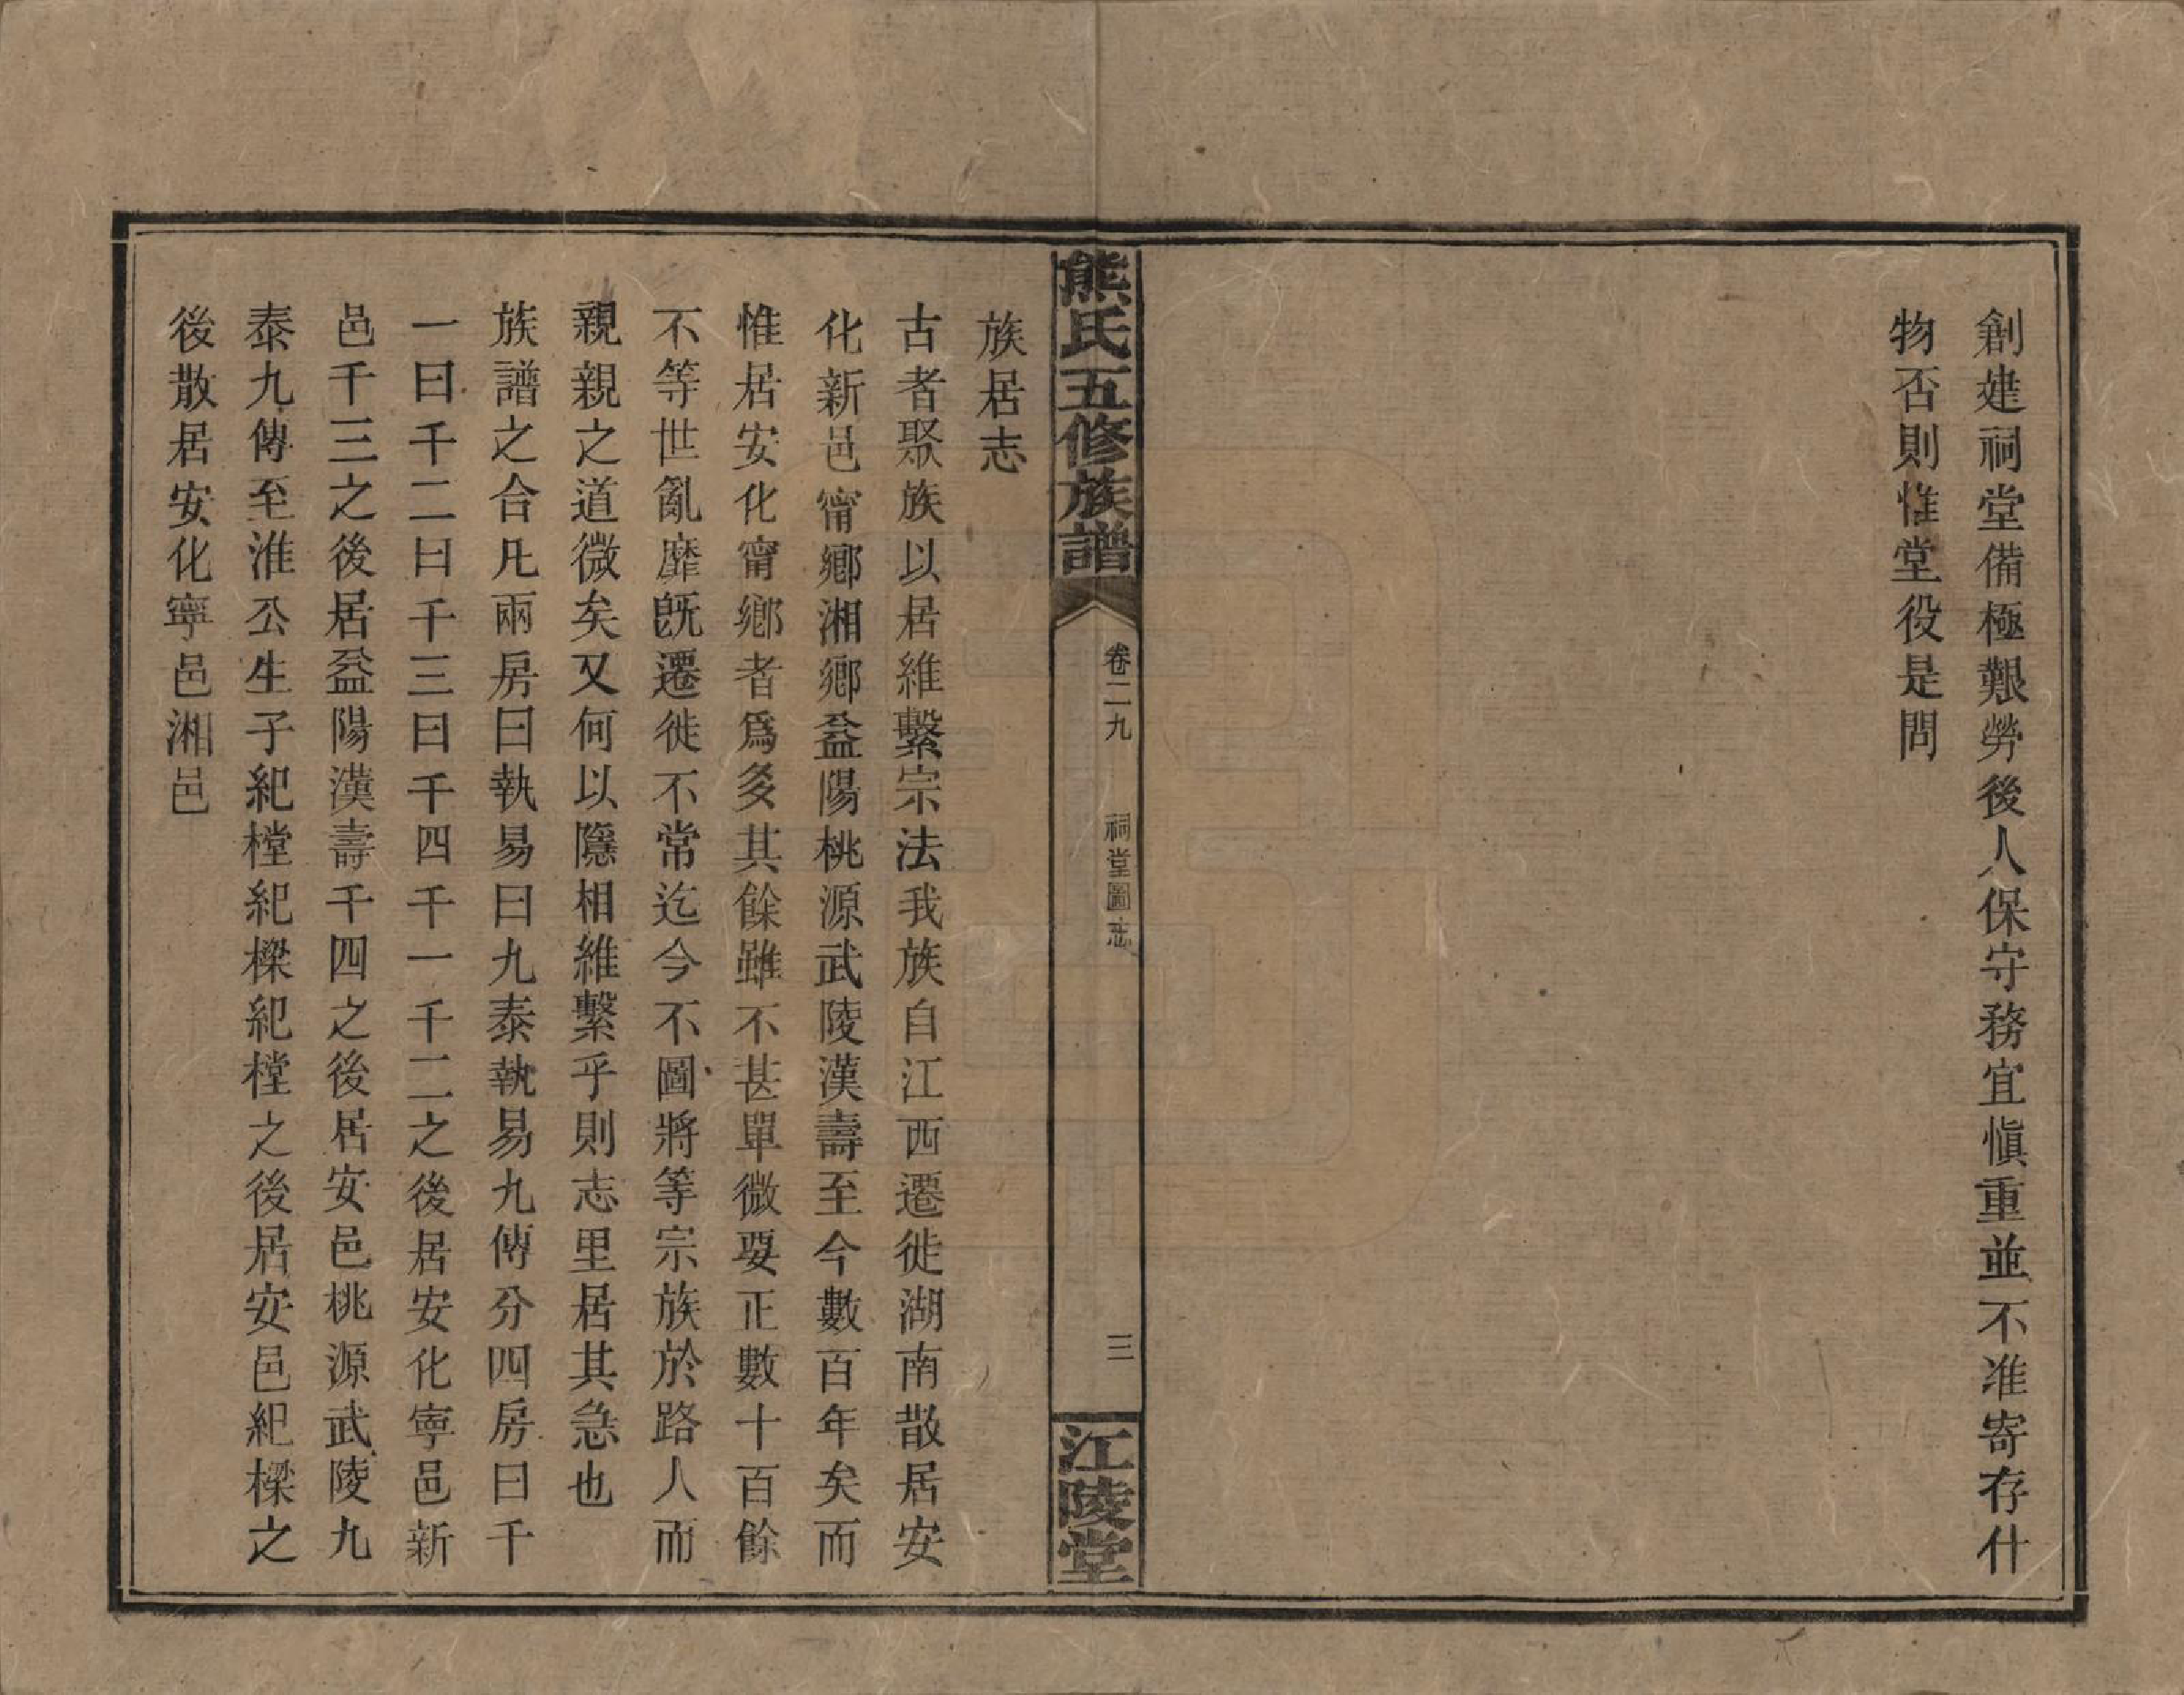 創建祠堂備極艱勞後人保守務宜慎重並不准寄存什
物否則惟堂役是問
熊氏五修族譜
卷二九
祠堂圖志
三
江陵堂
族居志
古者聚族以居維繫宗法我族自江西遷徙湖南散居安
化新邑甯鄉湘鄉益陽桃源武陵漢壽至今數百年矣而
惟居安化甯鄉者爲多其餘雖不甚單微要正數十百餘
不等世亂靡旣遷徙不常迄今不圖將等宗族於路人而
親親之道微矣又何以隱相維繫乎則志里居其急也
族譜之合凡兩房曰執易曰九泰執易九傳分四房曰千
一曰千二曰千三曰千四千一千二之後居安化寧邑新
邑千三之後居益陽漢壽千四之後居安邑桃源武陵九
泰九傳至淮公生子紀樘紀樑紀樘之後居安邑紀樑之
後散居安化寧邑湘邑